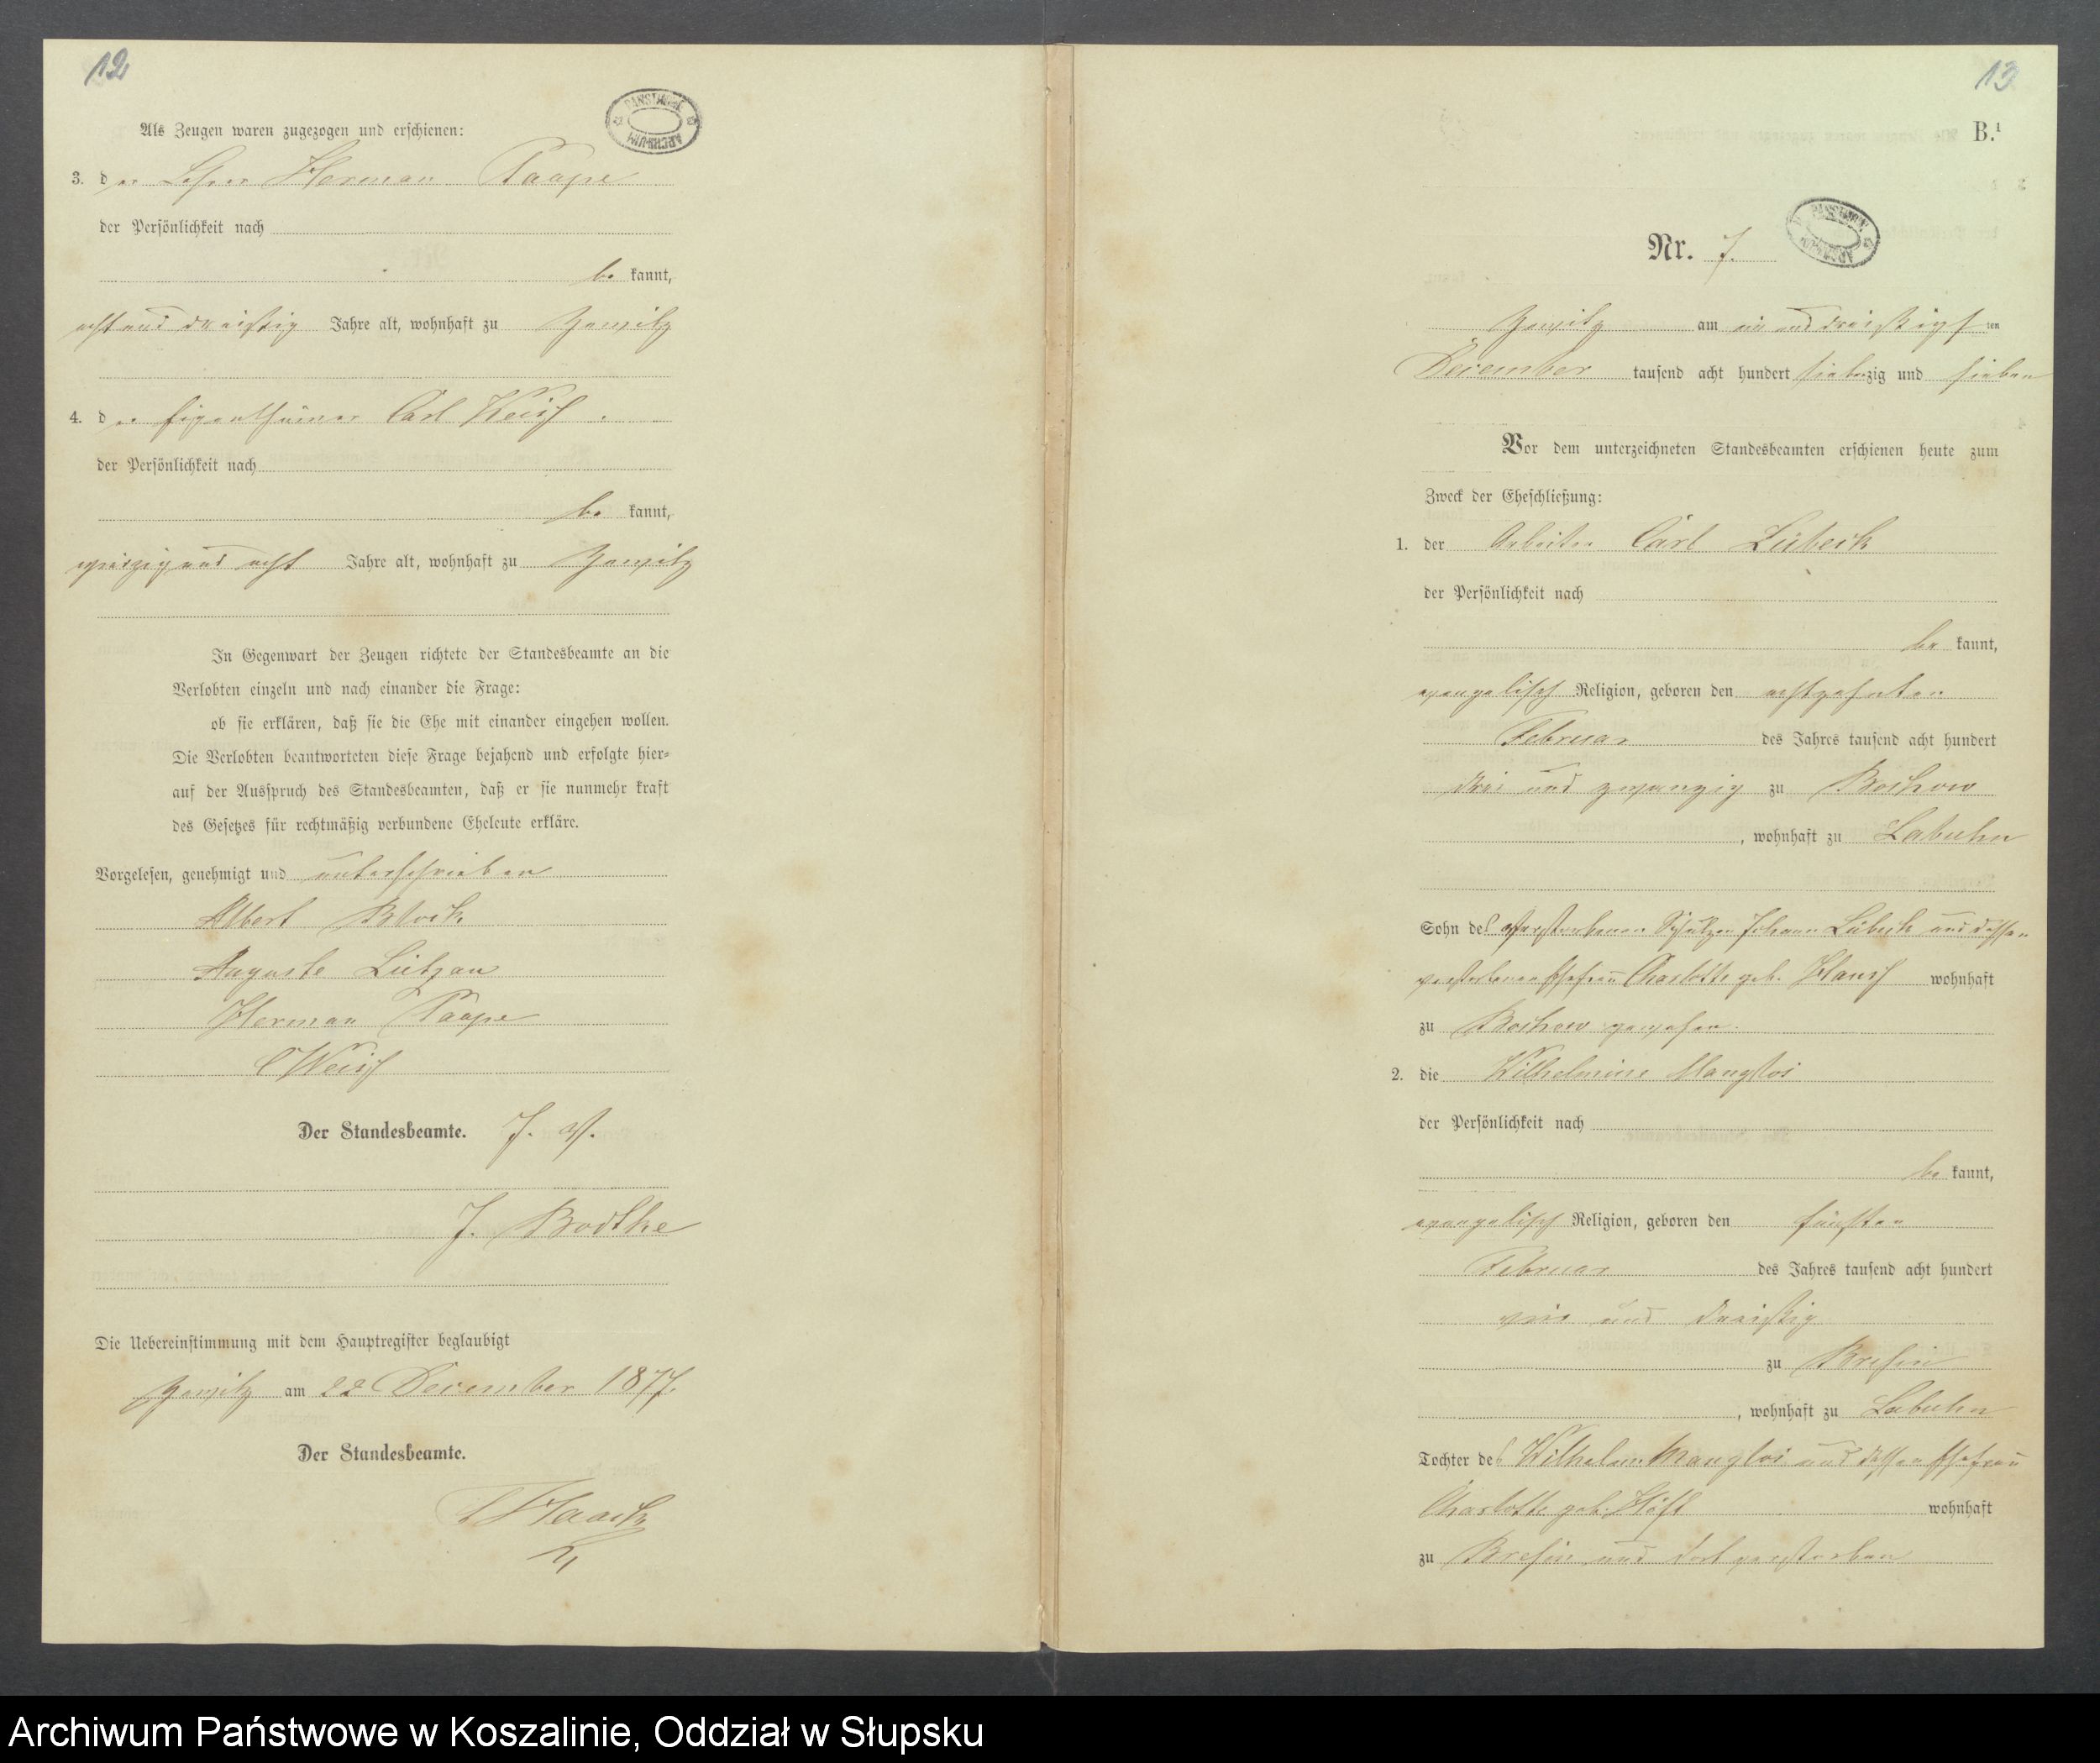 12
Als Zeugen waren zugezogen und erschienen:
PAŃSTWOWE ARCHIWUM
3. der Lehrer Herman Paape
der Persönlichkeit nach
be kannt,
acht und dreißig Jahre alt, wohnhaft zu Zewitz
4. der Eigenthümer Carl Weiß
der Persönlichkeit nach
be kannt,
vierzig und acht Jahre alt, wohnhaft zu Zewitz
In Gegenwart der Zeugen richtete der Standesbeamte an die
Verlobten einzeln und nach einander die Frage:
ob sie erklären, daß sie die Ehe mit einander eingehen wollen.
Die Verlobten beantworteten diese Frage bejahend und erfolgte hier-
auf der Ausspruch des Standesbeamten, daß er sie nunmehr kraft
des Gesetzes für rechtmäßig verbundene Eheleute erkläre.
Vorgelesen, genehmigt und unterschrieben
Albert Block
Auguste Lützau
Herman Paape
C Weiß
Der Standesbeamte. J. V.
J. Brodthe
Die Uebereinstimmung mit dem Hauptregister beglaubigt
Zewitz am 22 December 1877.
Der Standesbeamte.
Haack
13
B.¹
Nr. 7.
PAŃSTWOWE ARCHIWUM
Zewitz am ein und dreißigsten
December tausend acht hundert siebenzig und sieben
Vor dem unterzeichneten Standesbeamten erschienen heute zum
Zweck der Eheschließung:
1. der Arbeiter Carl Lübeck
der Persönlichkeit nach
be kannt,
evangelisch Religion, geboren den achtzehnten
Februar des Jahres tausend acht hundert
drei und zwanzig zu Bochow
, wohnhaft zu Labuhn
Sohn des verstorbenen Schulzen Johann Lübeck und dessen
verstorbenen Ehefrau Charlotte geb. wohnhaft
zu Bochow gewesen.
2. die Wilhelmine Mangloi
der Persönlichkeit nach
be kannt,
evangelisch Religion, geboren den fünften
Februar des Jahres tausend acht hundert
vier und dreißig
zu Bresin
, wohnhaft zu Labuhn
Tochter des Wilhelm Mangloi und dessen Ehefrau
Charlotte geb. wohnhaft
zu Bresin und dort verstorben
Archiwum Państwowe w Koszalinie, Oddział w Słupsku